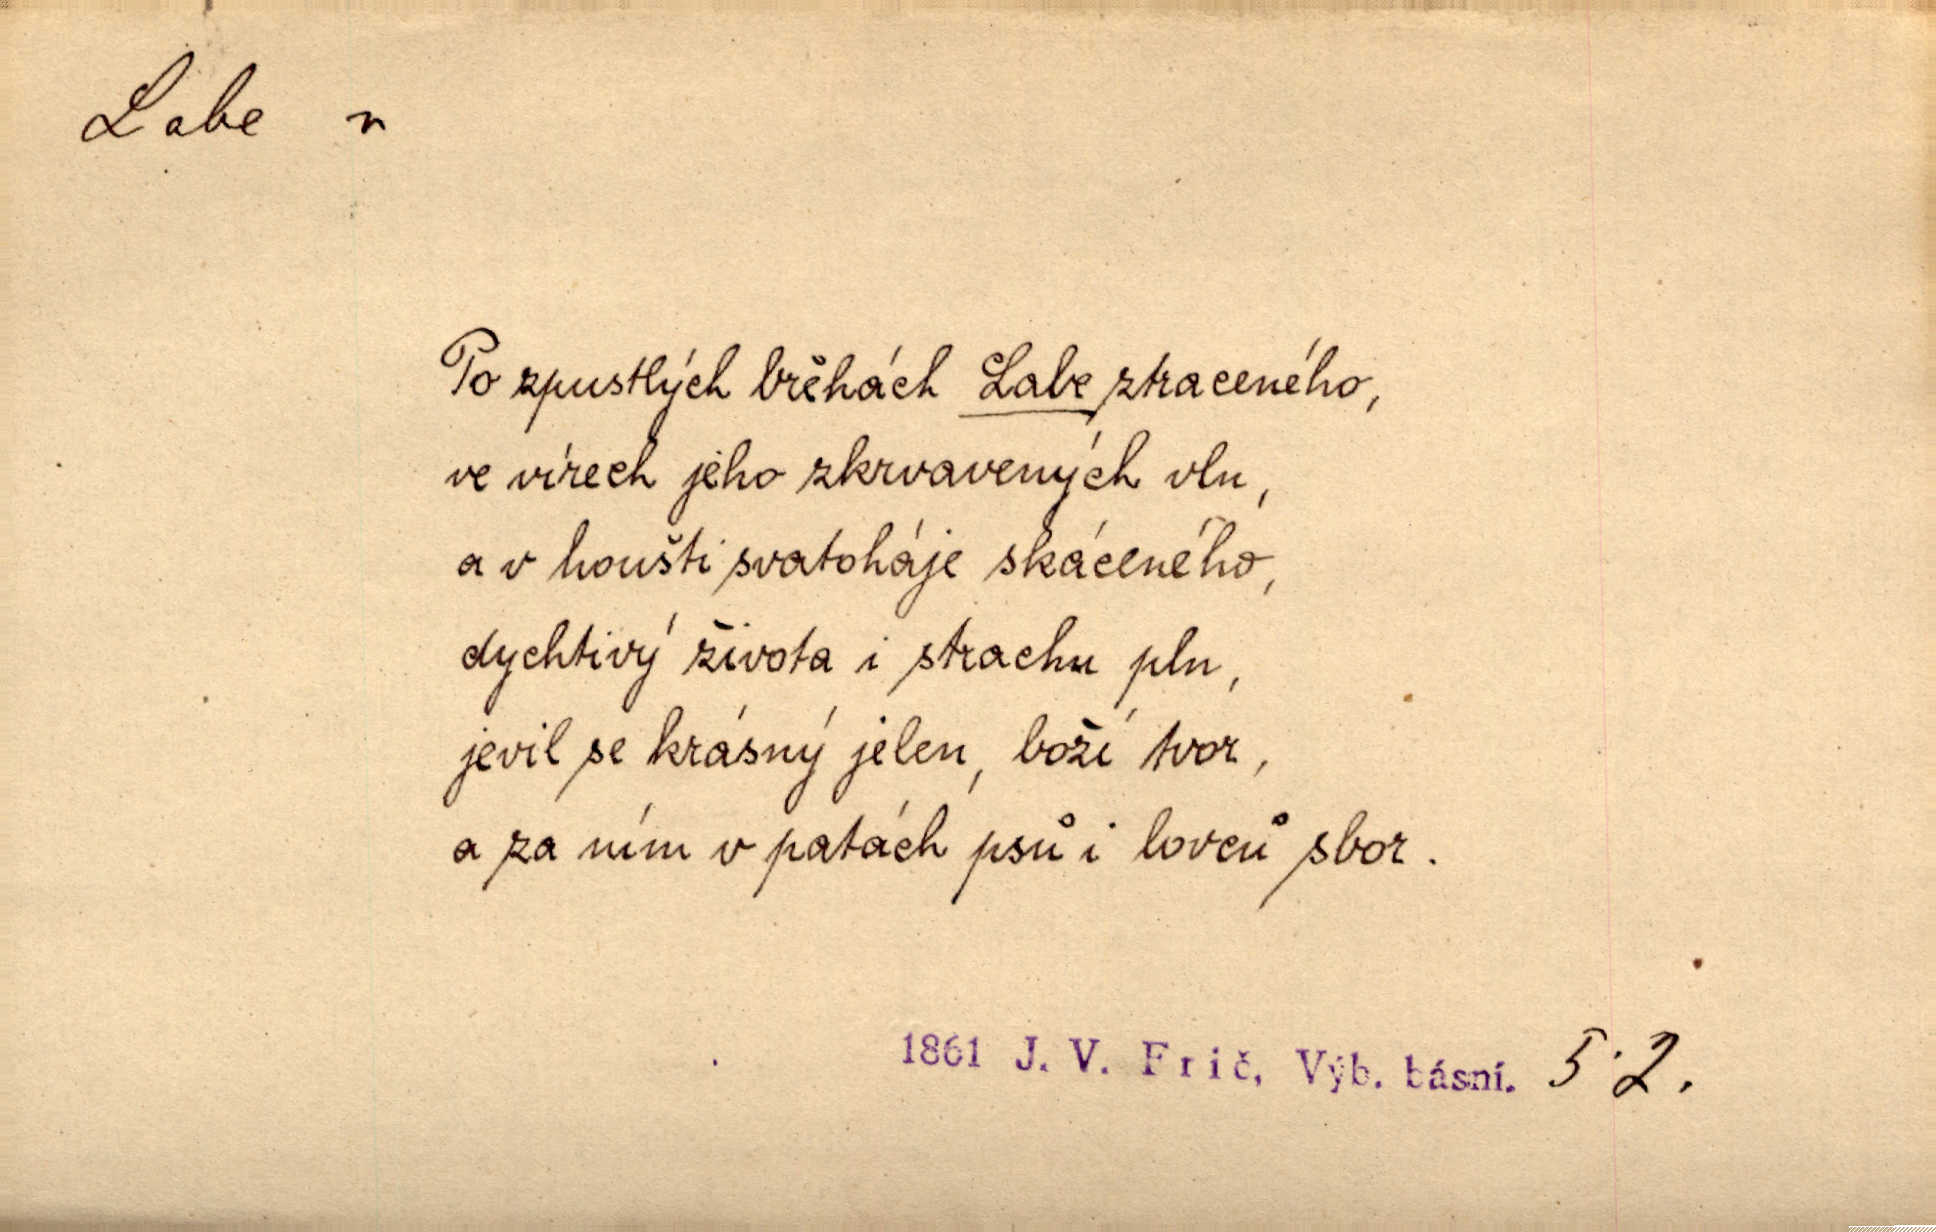 Labe n
Po zpustlých břěhách Labe ztraceného,
ve vírech jeho zkrvavených vln,
a v houšti svatoháje skáceného,
dychtivý života i strachu pln,
jevil se krásný jelen, boží tvor,
a za ním v patách psů i lovců sbor.
1861 J. V. Frič, Výb. básní. 52.